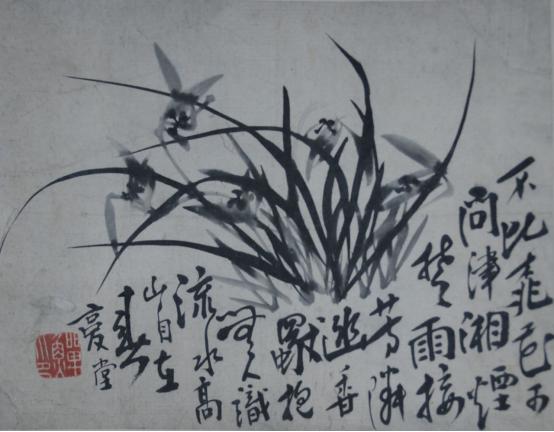 不比桃花可
問津湘煙
楚雨接
芳隣
幽香
獨抱
無人識
流水高
山自在
春
堂